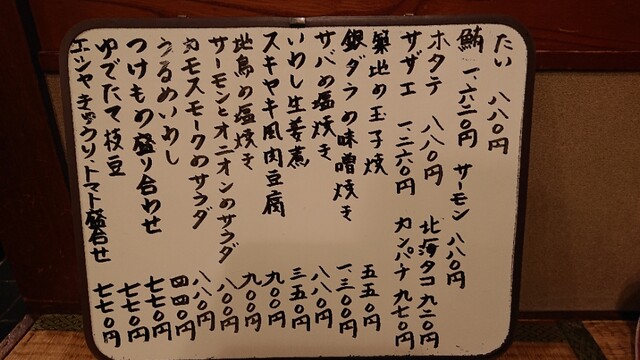 たい 八八〇円
鮪 一、六二〇円 サーモン 八八〇円
ホタテ 八八〇円 北海タコ 九二〇円
サザエ 一、二六〇円 カンパチ 九七〇円
築地の玉子焼 五五〇円
銀ダラの味噌焼き 一、三〇〇円
サバの塩焼き 八八〇円
いわし生姜煮 三五〇円
スキヤキ風肉豆腐 九〇〇円
地鳥の塩焼き 九〇〇円
サーモンとオニオンのサラダ 八〇〇円
カモスモークのサラダ 八八〇円
うるめいわし 四四〇円
つけもの盛り合わせ 七七〇円
ゆでたて枝豆 七七〇円
エシャ、キュウリ、トマト盛合せ 七七〇円